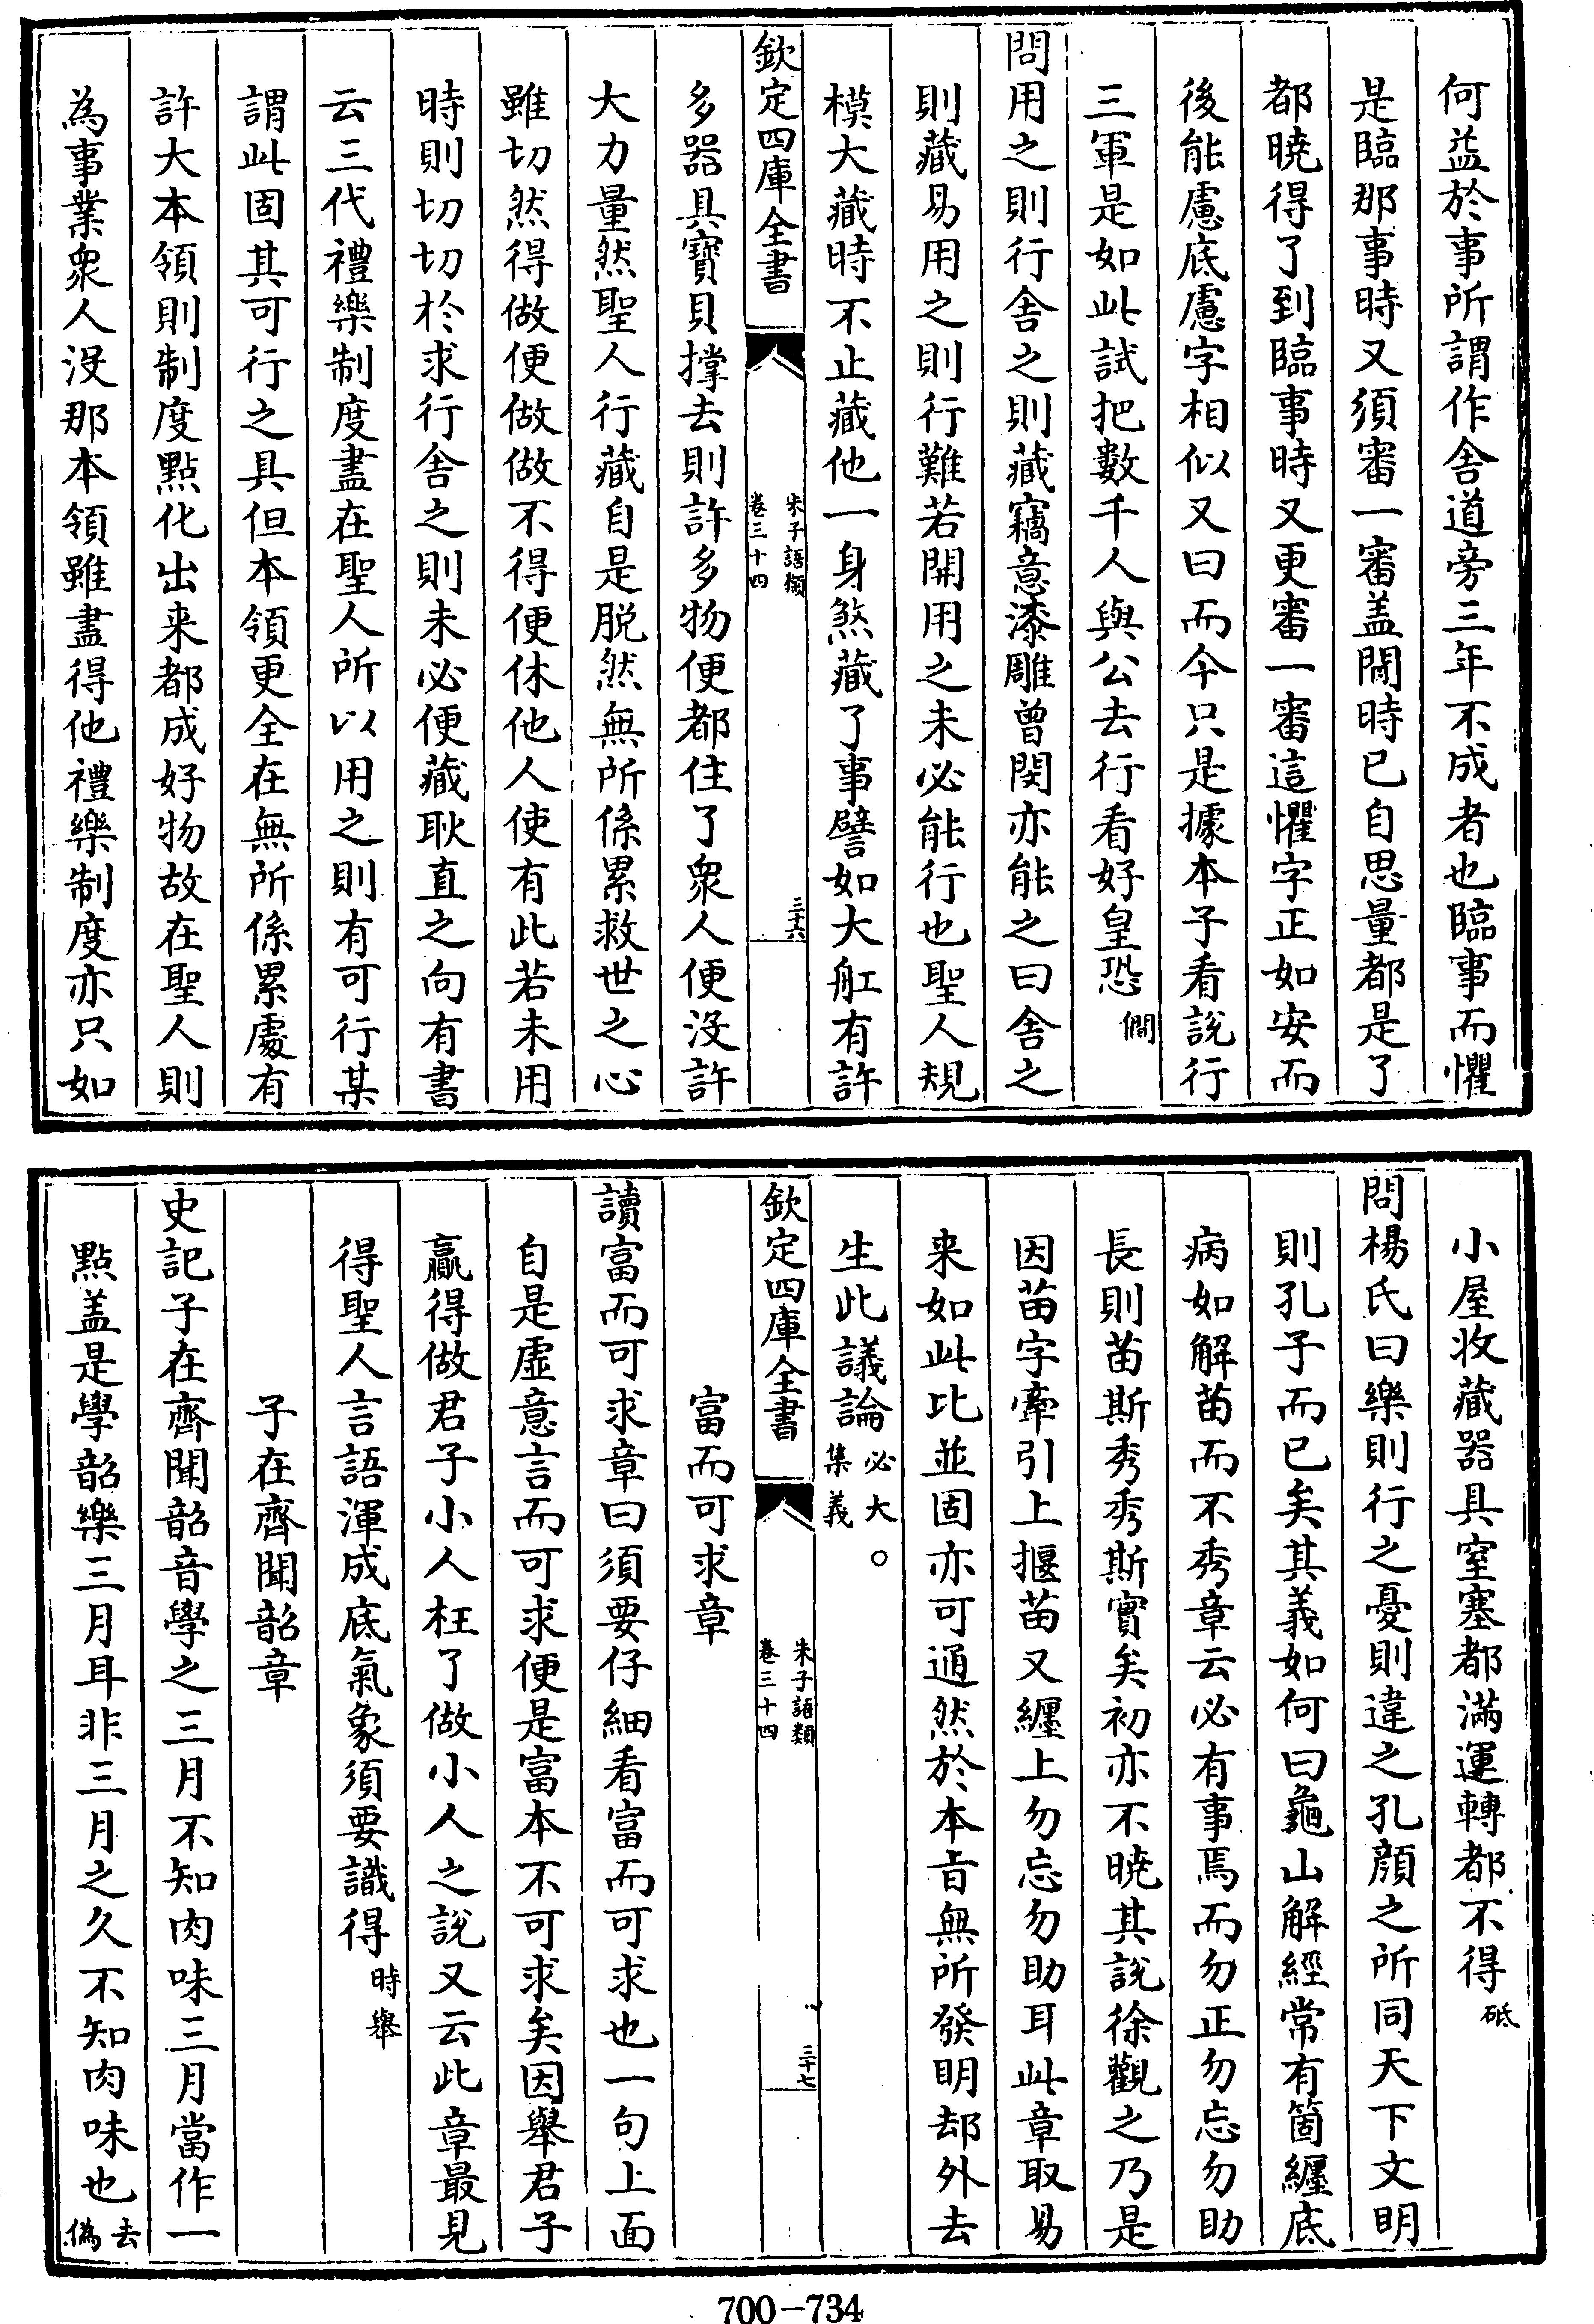 何益於事所謂作舍道旁三年不成者也臨事而懼
是臨那事時又須審一審盖閒時已自思量都是了
都曉得了到臨事時又更審一審這懼字正如安而
後能慮底慮字相似又曰而今只是據本子看說行
三軍是如此試把數千人與公去行看好皇恐僩
問用之則行舍之則藏竊意漆雕曾閔亦能之曰舍之
則藏易用之則行難若開用之未必能行也聖人規
模大藏時不止藏他一身煞藏了事譬如大舡有許
欽定四庫全書
朱子語類
卷三十四
三十六
多器具寳貝撑去則許多物便都住了衆人便没許
大力量然聖人行藏自是脱然無所係累救世之心
雖切然得做便做做不得便休他人使有此若未用
時則切切於求行舍之則未必便藏耿直之向有書
云三代禮樂制度盡在聖人所以用之則有可行某
謂此固其可行之具但本領更全在無所係累處有
許大本領則制度點化出来都成好物故在聖人則
為事業衆人没那本領雖盡得他禮樂制度亦只如
小屋收藏器具窒塞都滿運轉都不得砥
問楊氏曰樂則行之憂則違之孔顔之所同天下文明
則孔子而已矣其義如何曰龜山解經常有箇纒底
病如解苗而不秀章云必有事焉而勿正勿忘勿助
長則苗斯秀秀斯實矣初亦不曉其說徐觀之乃是
因苗字牽引上揠苗又纒上勿忘勿助耳此章取易
来如此比並固亦可通然於本㫖無所發明却外去
生此議論必大
集義。
欽定四庫全書
朱子語類
卷三十四
三十七
富而可求章
讀富而可求章曰須要仔細看富而可求也一句上面
自是虚意言而可求便是富本不可求矣因舉君子
贏得做君子小人枉了做小人之說又云此章最見
得聖人言語渾成底氣象須要識得時舉
子在齊聞韶章
史記子在齊聞韶音學之三月不知肉味三月當作一
點盖是學韶樂三月耳非三月之久不知肉味也去偽
700-734